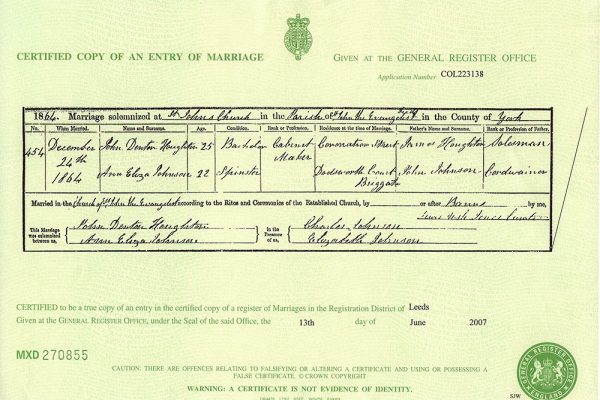 CERTIFIED COPY OF AN ENTRY OF MARRIAGE
GIVEN AT THE GENERAL REGISTER OFFICE
Application Number COL223138
1864. Marriage solemnized at St Johns Church in the Parish of St John the Evangelist in the County of York
No. When Married. Name and Surname. Age. Condition. Rank or Profession. Residence at the time of Marriage. Father's Name and Surname. Rank or Profession of Father.
454 December 24th 1864 John Denton Houghton 25 Bachelor Cabinet Maker Coronation Street James Houghton Salesman
Ann Eliza Johnson 22 Spinster Dodsworth Court Briggate John Johnson Cordwainer
Married in the Church of St John the Evangelist according to the Rites and Ceremonies of the Established Church, by or after Banns by me,
Curate
This Marriage was solemnized between us, John Denton Houghton Ann Eliza Johnson in the Presence of us, Charles Johnson Elizabeth Johnson
CERTIFIED to be a true copy of an entry in the certified copy of a register of Marriages in the Registration District of Leeds
Given at the GENERAL REGISTER OFFICE, under the Seal of the said Office, the 13th day of June 2007
MXD 270855
CAUTION: THERE ARE OFFENCES RELATING TO FALSIFYING OR ALTERING A CERTIFICATE AND USING OR POSSESSING A
FALSE CERTIFICATE. © CROWN COPYRIGHT
WARNING: A CERTIFICATE IS NOT EVIDENCE OF IDENTITY.
GENERAL REGISTER OFFICE
ENGLAND
SJW